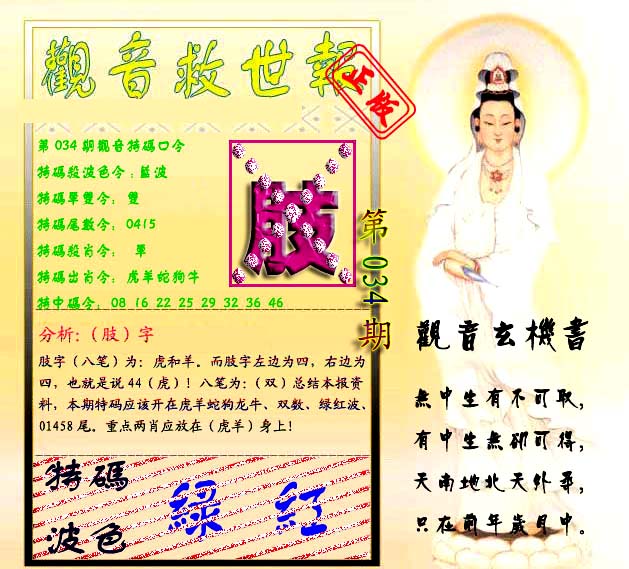 觀音救世報
正版
第034期觀音特碼口令
特碼殺波色令:藍波
特碼單雙令: 雙
特碼尾數令: 0415
特碼殺肖令: 單
特碼出肖令: 虎羊蛇狗牛
特中碼令: 08 16 22 25 29 32 36 46
肢
第034期
分析:（肢）字
肢字（八笔）为: 虎和羊。而肢字左边为四，右边为
四，也就是说44（虎）！八笔为:（双）总结本报资
料，本期特码应该开在虎羊蛇狗龙牛、双数、绿红波、
01458尾。重点两肖应放在（虎羊）身上！
特碼
波色
綠 紅
觀音玄機書
無中生有不可取，
有中生無卻可得，
天南地北天外尋，
只在前年歲月中。